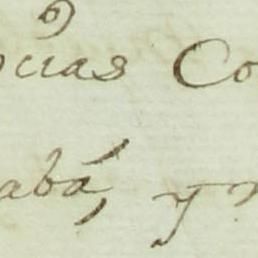 cias Co
abá, y